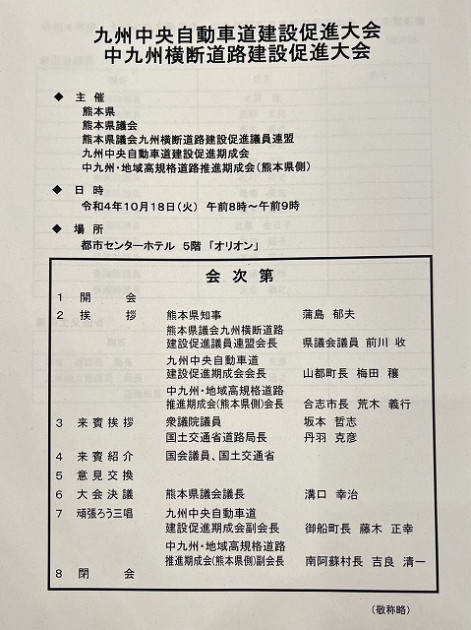 九州中央自動車道建設促進大会
中九州横断道路建設促進大会
◆ 主 催
熊本県
熊本県議会
熊本県議会九州横断道路建設促進議員連盟
九州中央自動車道建設促進期成会
中九州・地域高規格道路推進期成会(熊本県側)
◆ 日 時
令和4年10月18日(火) 午前8時～午前9時
◆ 場 所
都市センターホテル 5階 「オリオン」
会 次 第
1 開 会
2 挨 拶 熊本県知事 蒲島 郁夫
熊本県議会九州横断道路
建設促進議員連盟会長 県議会議員 前川 收
九州中央自動車道
建設促進期成会会長 山都町長 梅田 穰
中九州・地域高規格道路
推進期成会(熊本県側)会長 合志市長 荒木 義行
3 来賓挨拶 衆議院議員 坂本 哲志
国土交通省道路局長 丹羽 克彦
4 来賓紹介 国会議員、国土交通省
5 意見交換
6 大会決議 熊本県議会議長 溝口 幸治
7 頑張ろう三唱 九州中央自動車道
建設促進期成会副会長 御船町長 藤木 正幸
中九州・地域高規格道路
推進期成会(熊本県側)副会長 南阿蘇村長 吉良 清一
8 閉 会
(敬称略)